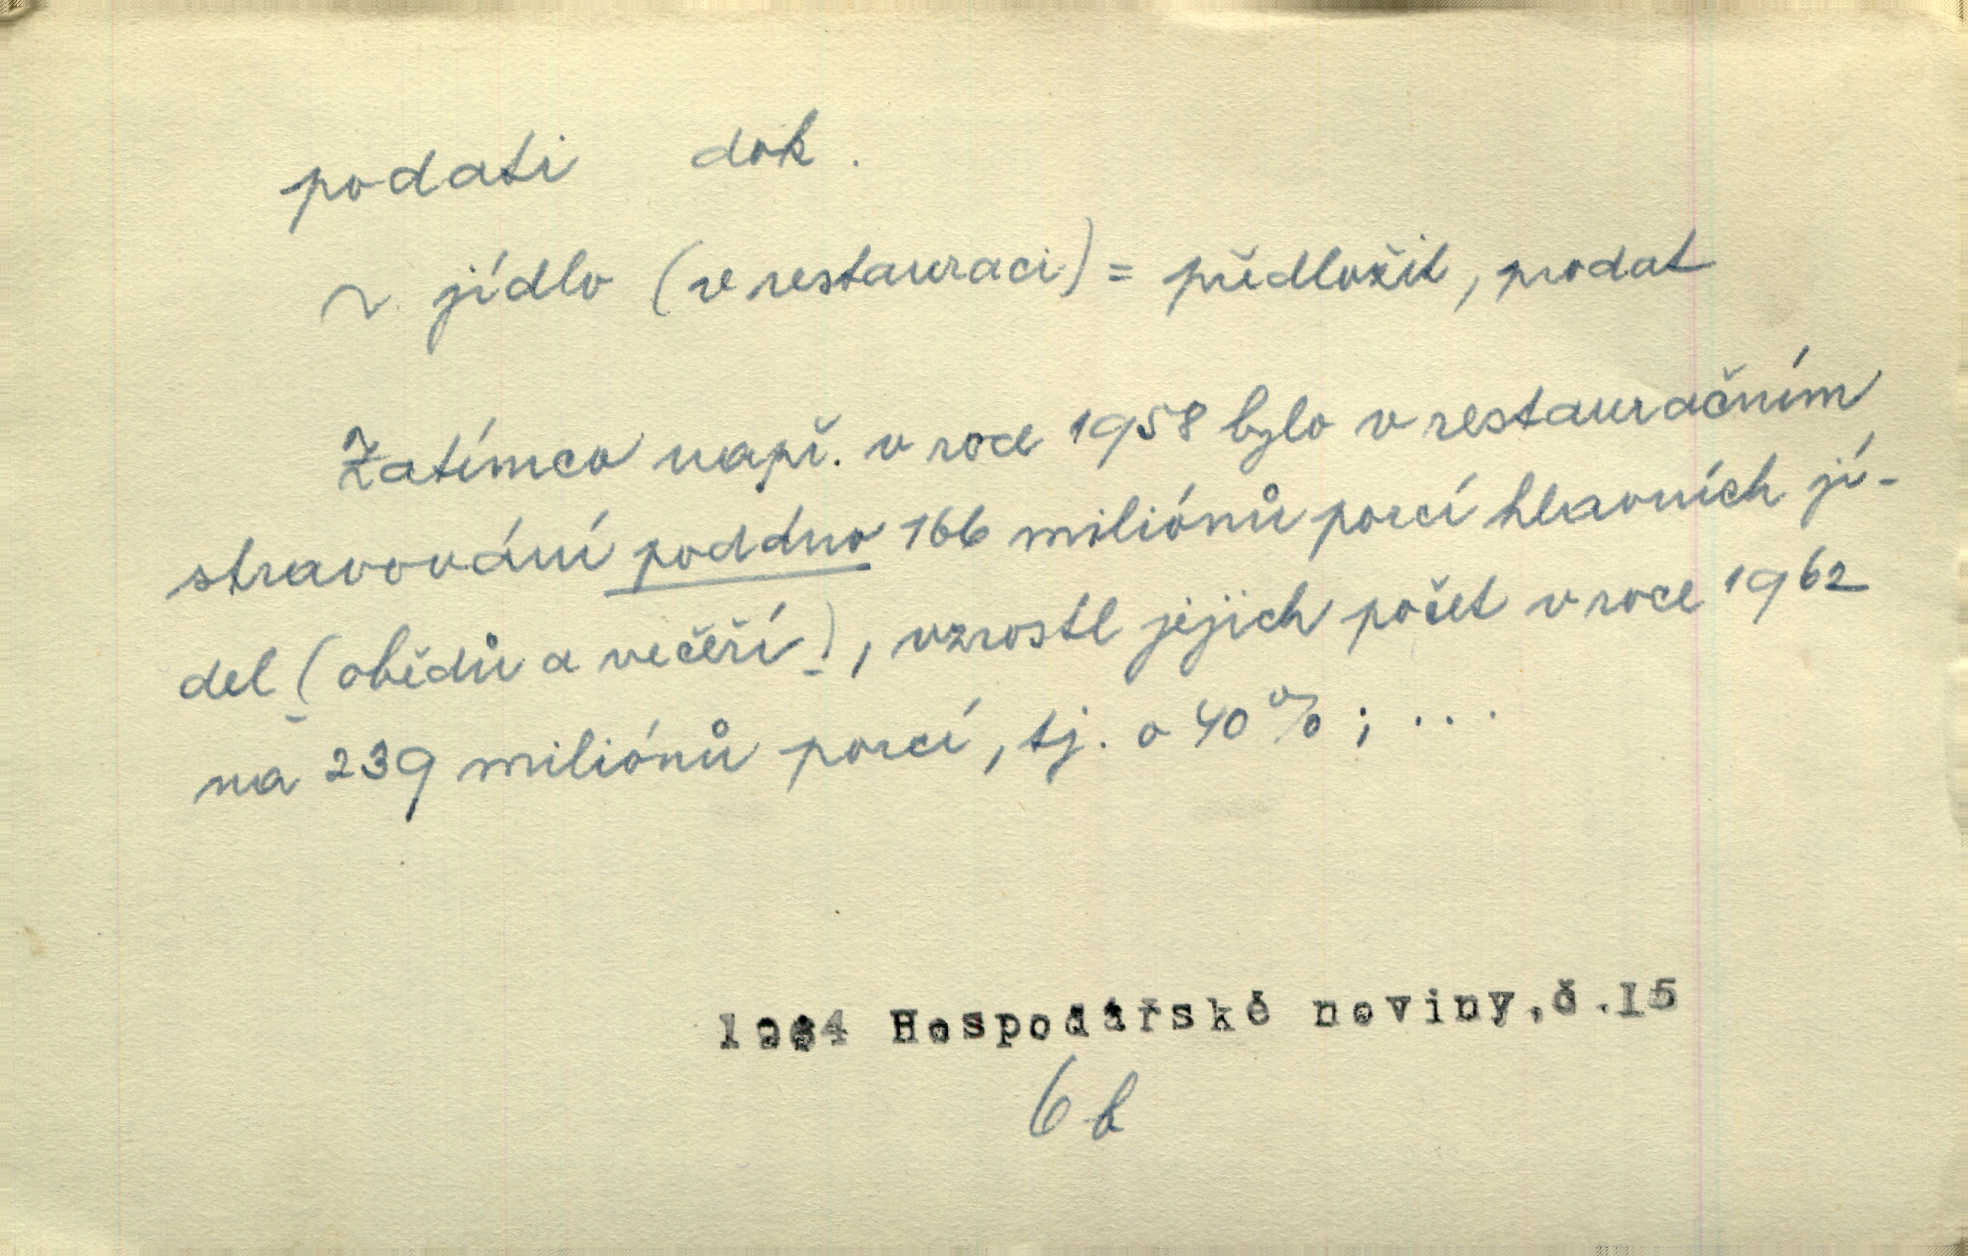 podati dok.
~ jídlo (v restauraci) = předložit, prodat
Zatímco např. v roce 1958 bylo v restauračním
stravování podáno 166 miliónů porcí hlavních jí-
del (obědů a večeří), vzrostl jejich počet v roce 1962
na 239 miliónů porcí, tj. o 40 %; ...
1964 Hospodářské noviny, č. 15
6 b